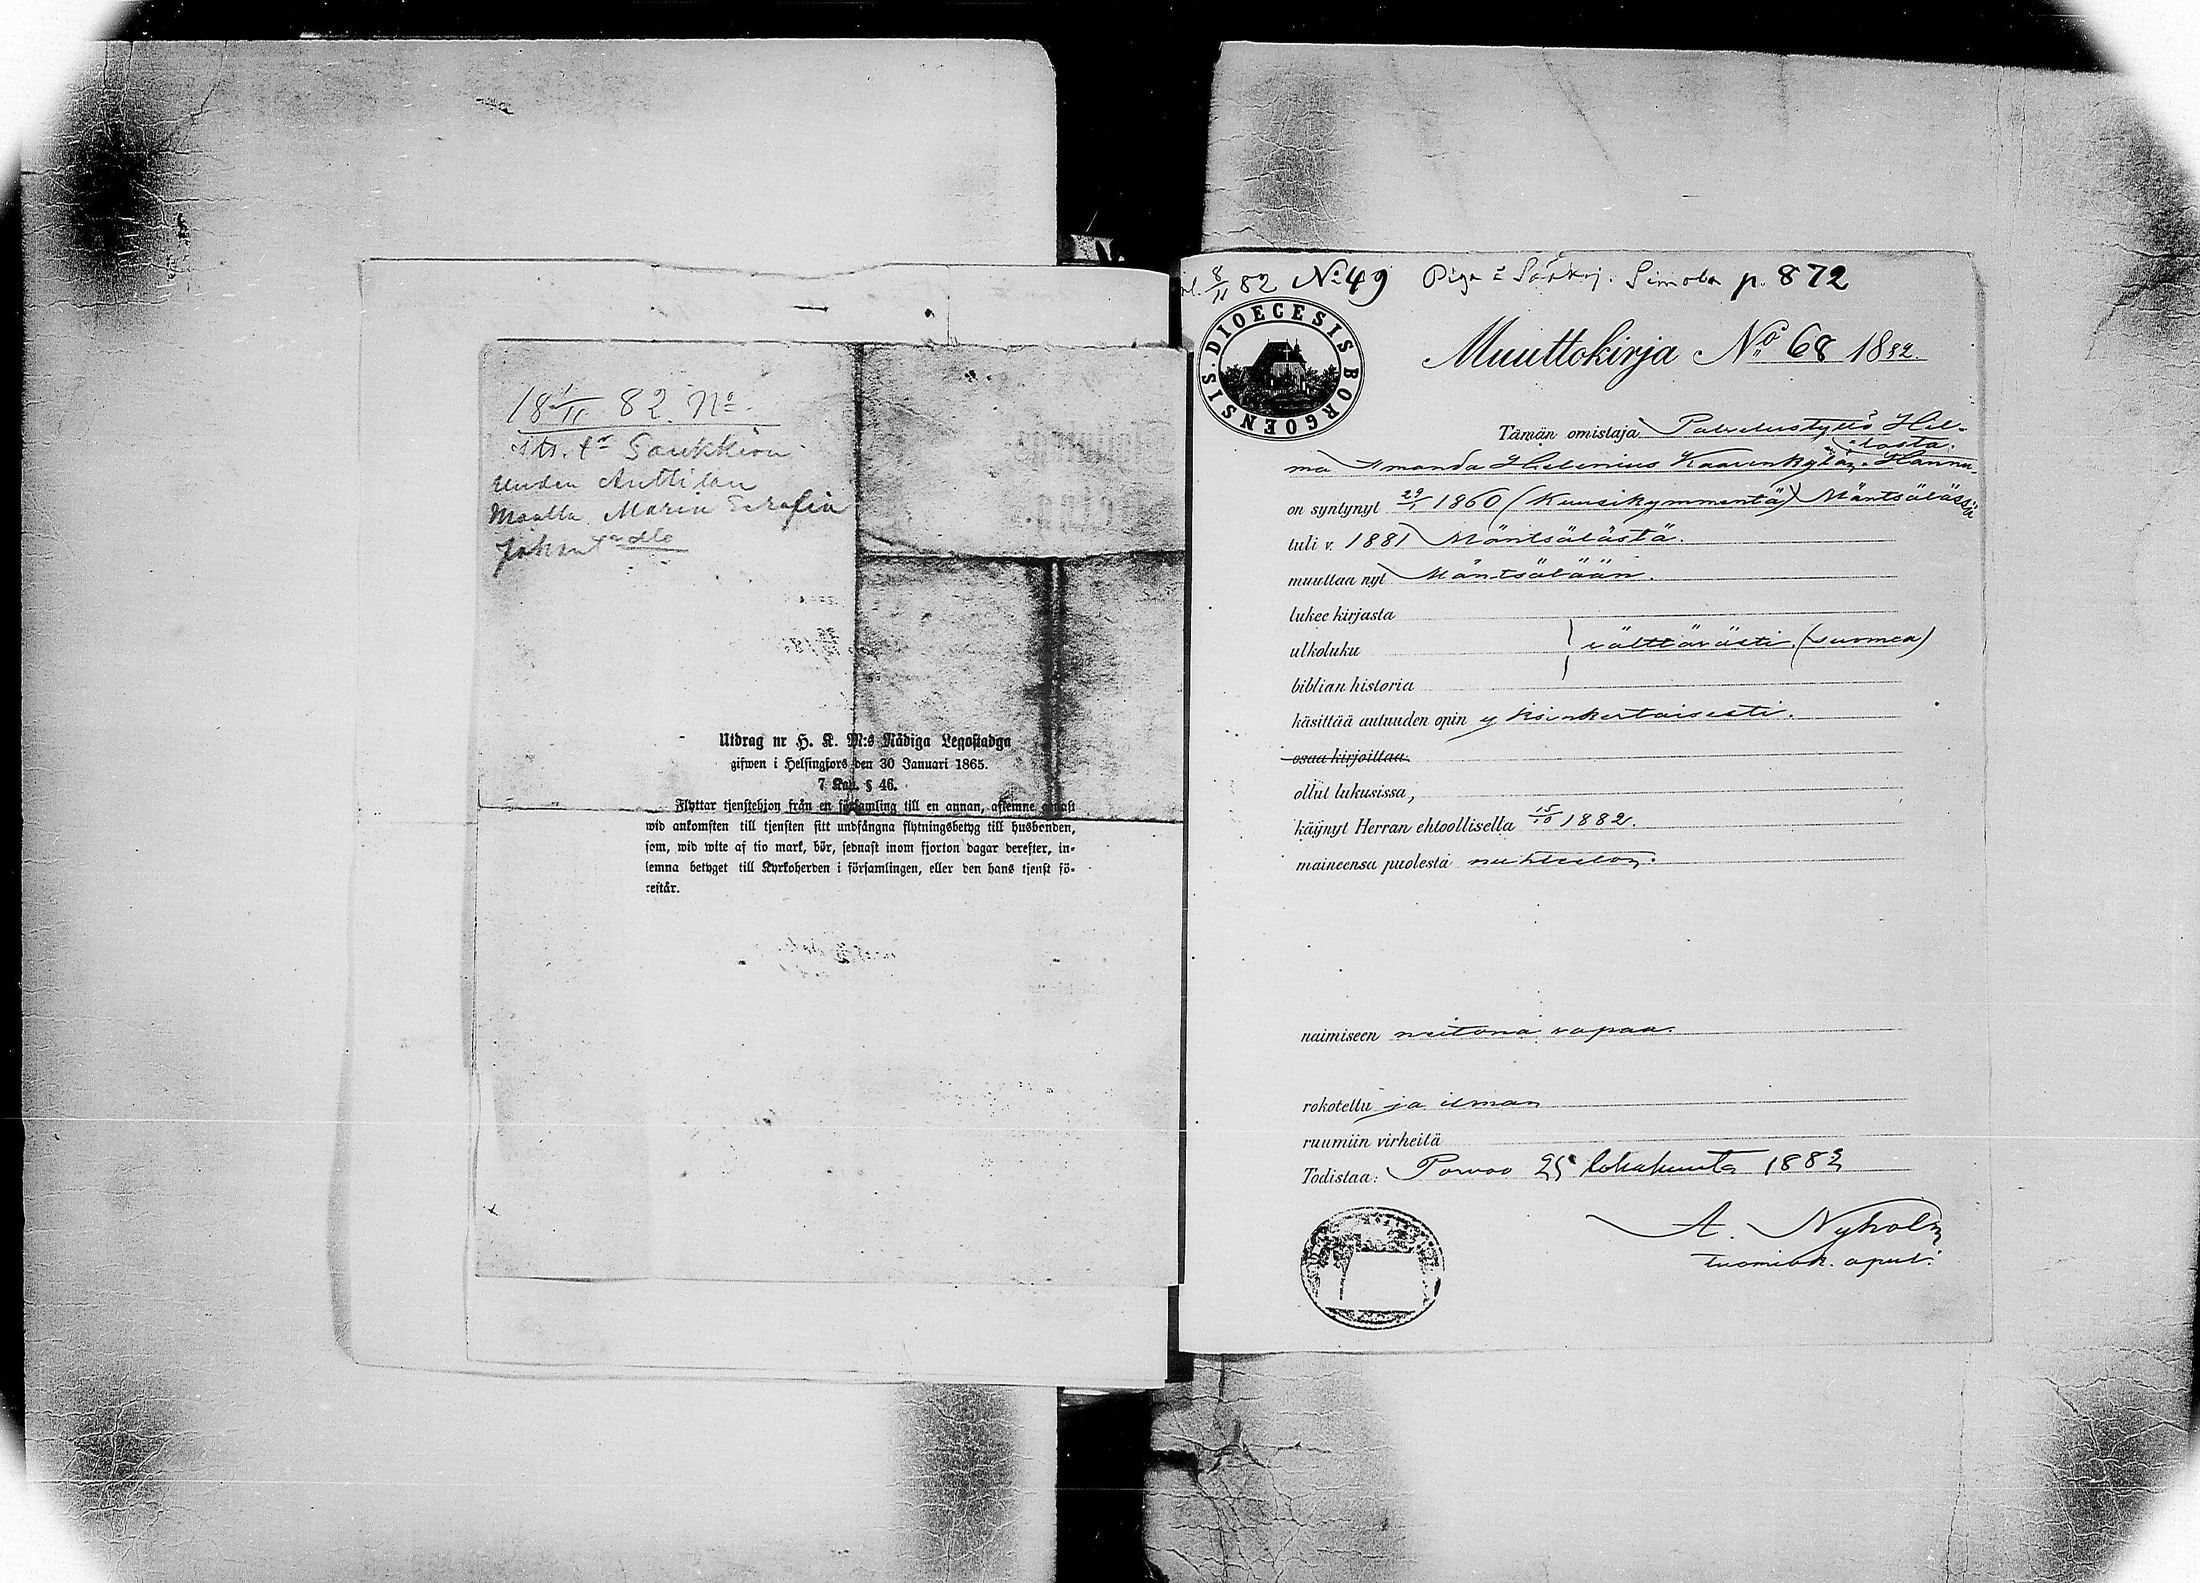 18 1/11 82. No
Anttilan
Maria Serafia
Utdrag ur H. K. M:s Nådiga Legostadga
gifwen i Helsingfors den 30 Januari 1865.
7 Kap. § 46.
Flyttar tjenstehjon från en församling till en annan, aflemne genast
wid ankomsten till tjensten sitt undfångna flytningsbetyg till husbonden,
som, wid wite af tio mark, bör, sednast inom fjorton dagar derefter, in-
lemna betyget till Kyrkoherden i församlingen, eller den hans tjenst fö-
restår.
8/11 82 No 49 Piga i Simola p. 872
DIOECESIS BORGOENSIS.
Muuttokirja No 68 1882
Tämän omistaja Palvelustyttö Hil-
ma Amanda Helenius Kaarenkylän Hannu-
lasta.
on syntynyt 29/1 1860 (Kuusikymmentä) Mäntsälässä
tuli v. 1881 Mäntsälästä.
muuttaa nyt Mäntsälään.
lukee kirjasta
ulkoluku } välttävästi (suomea)
biblian historia
käsittää autuuden opin yksinkertaisesti.
osaa kirjoittaa
ollut lukusissa,
käynyt Herran ehtoollisella 15/10 1882.
maineensa puolesta nuhteeton.
naimiseen neitona vapaa.
rokotettu ja ilman
ruumiin virheitä
Todistaa: Porvoo 25 lokakuuta 1882
A. Nyholm
tuomiok. apul.